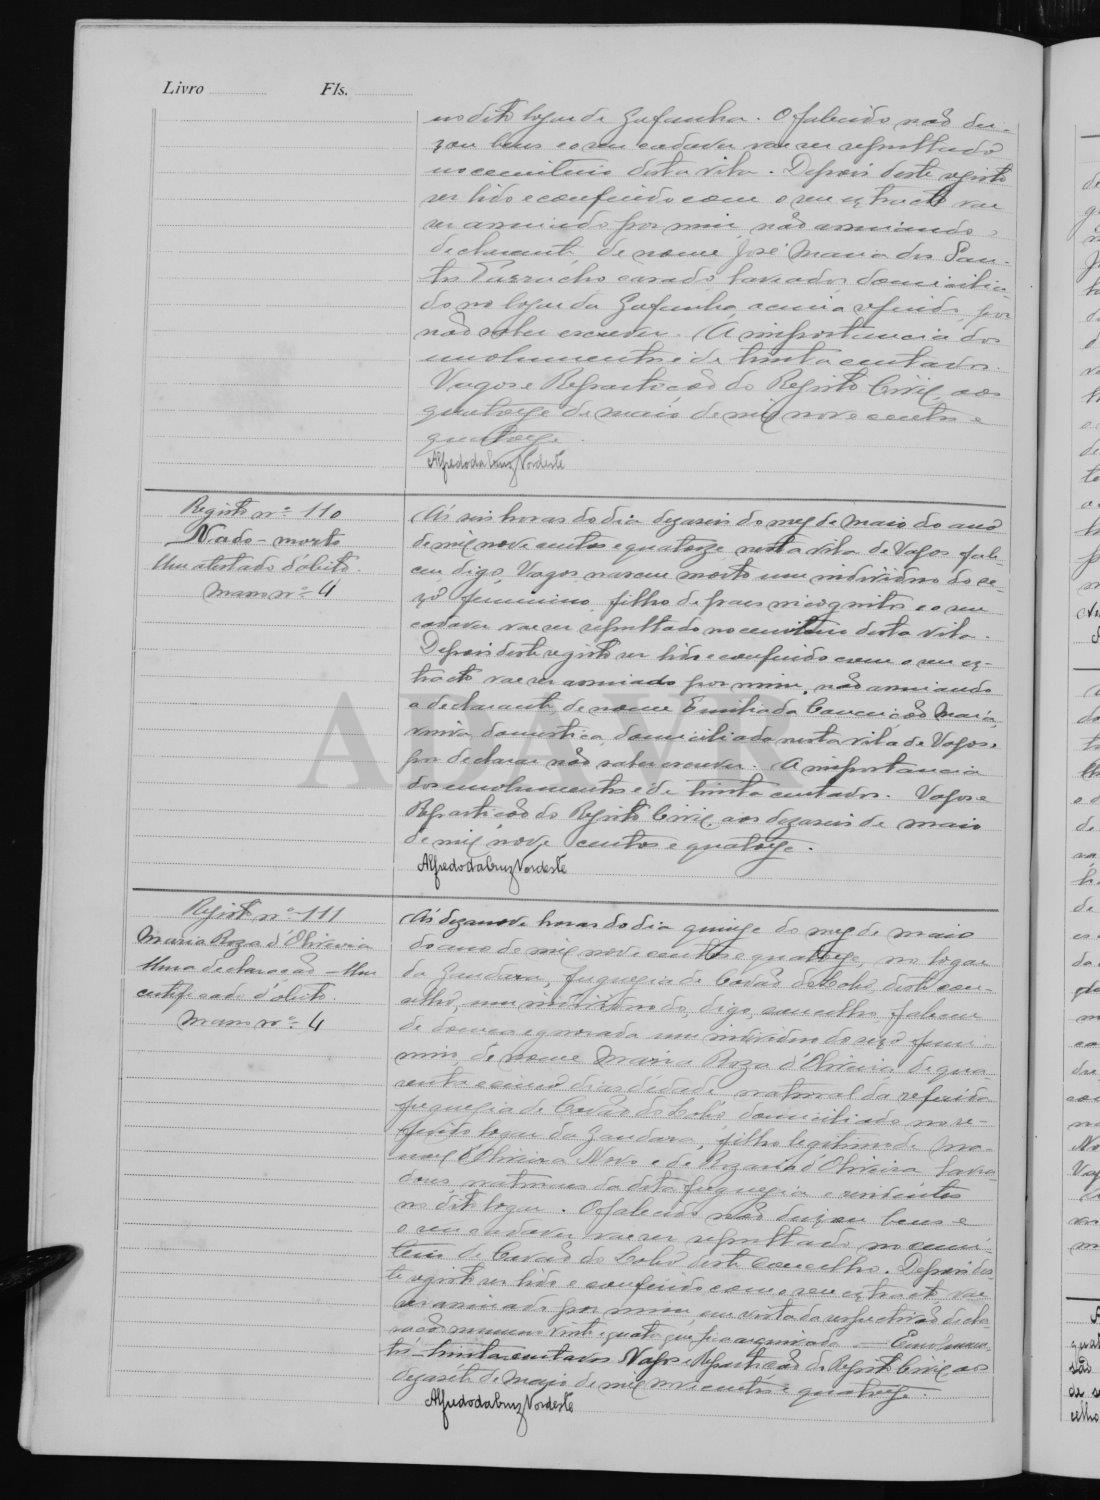 Livro Fls.
no dito logar da Gafanha. O falecido não dei-
xou bens e o seu cadaver vae ser sepultado
no cemiterio desta vila. Depois deste registo
ser lido e conferido com o seu extracto vae
ser assinado por mim, não assinando o
declarante, de nome José Maria dos San-
tos casado, lavrador, domicilia-
do no logar da Gafanha, acima referido, por
não saber escrever. A importancia dos
emolumentos é de trinta centavos.
Vagos e Repartição do Registo Civil, aos
quatorze de maio de mil nove centos e
quatorze.
Alfredo da Cruz Nordeste
Registo nº 110
Nado-morto
Um atestado d'obito.
Maço nº 4
Ás seis horas do dia dezaseis do mez de Maio do ano
de mil nove centos e quatorze nesta vila de Vagos fale-
ceu digo, Vagos, nasceu morto um individuo do se-
xo femenino, filho de paes incognitos e o seu
cadaver vae ser sepultado no cemiterio desta vila.
Depois deste registo ser lido e conferido com o seu ex-
tracto vae ser assinado por mim, não assinando
a declarante, de nome Emilia da Conceição Maia,
viuva, domestica, domiciliada nesta vila de Vagos e
por declarar não saber escrever. A importancia
dos emolumentos é de trinta centavos. Vagos e
Repartição do Registo Civil, aos dezaseis de maio
de mil nove centos e quatorze.
Alfredo da Cruz Nordeste
Registo nº 111
Maria Roza d'Oliveira
Uma declaração - Um
certificado d'obito.
Maço nº 4
Ás dezanove horas do dia quinze do mez de maio
do ano de mil nove centos e quatorze, no logar
da Gandara, freguezia de Covão do Lobo, deste con-
celho, um individuo do, digo, concelho, faleceu
de doença egnorada um individuo do sexo femi-
nino, de nome Maria Roza d'Oliveira, de qua-
renta e cinco dias d'edade, natural da referida
freguezia de Covão do Lobo, domiciliado no re-
ferido logar da Gandara, filho legitimo de Ma-
nuel d'Oliveira Novo e de Rozaria d'Oliveira, lavra-
dores naturaes da dita freguezia e residentes
no dito logar. O falecido não deixou bens e
o seu cadaver vae ser sepultado no cemi-
terio de Covão do Lobo deste concelho. Depois des-
te registo ser lido e conferido com o seu extracto vae
ser assinado por mim, em vista da respectiva decla-
ração numero vinte e quatro que fica arquivada. Emolumen-
tos trinta centavos Vagos e Repartição do Registo Civil aos
dezasete de Maio de mil nove centos e quatorze.
Alfredo da Cruz Nordeste
ADAVR